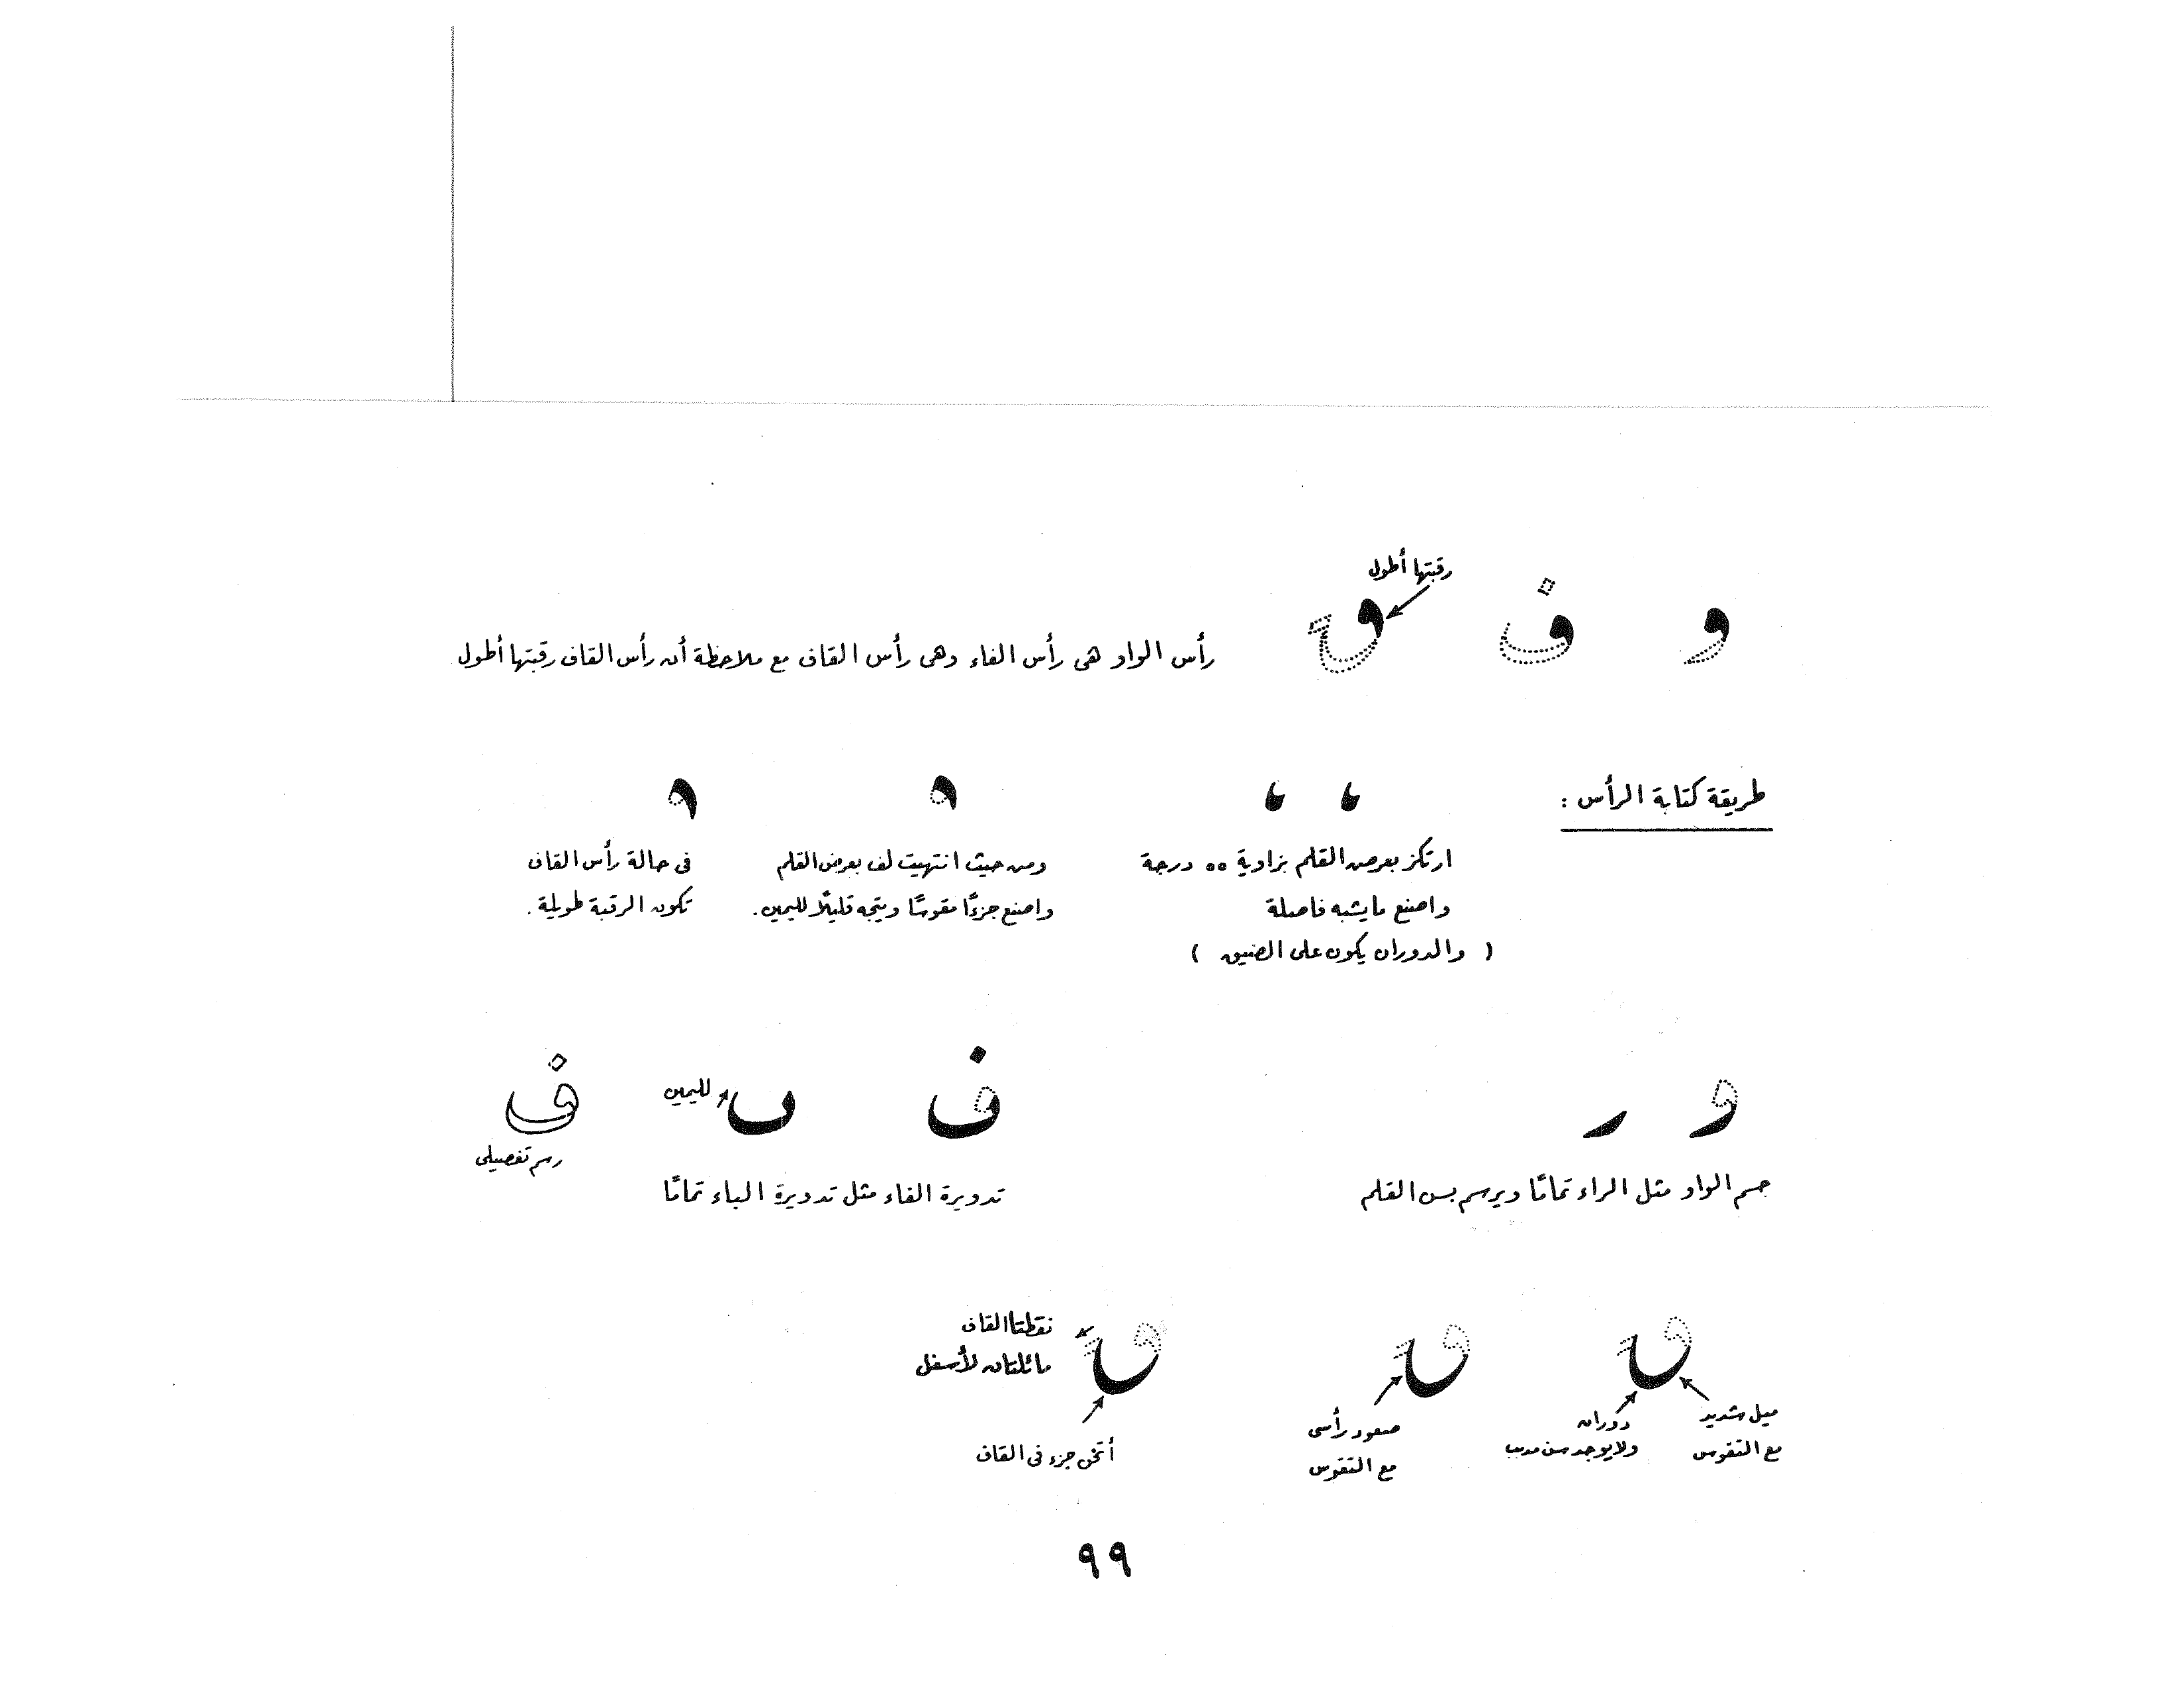 رقبتها أطول
و ف ق
رأس الواو هى رأس الفاء وهى رأس القاف مع ملاحظة أن رأس القاف رقبتها أطول
طريقة كتابة الرأس :
ارتكز بعرض القلم بزاوية ٥٥ درجة
واصنع مايشبه فاصلة
( والدوران يكون على الضيق )
ومن حيث انتهيت لف بعرض القلم
واصنع جزءًا مقوسًا ويتجه قليلًا لليمين.
فى حالة رأس القاف
تكون الرقبة طويلة.
و ر
جسم الواو مثل الراء تمامًا ويرسم بسن القلم
ف
لليمين
ف
رسم تفصيلى
تدويرة الفاء مثل تدويرة الباء تمامًا
ق ق ق
ميل شديد
مع التقوس
دوران
ولايوجد سن مدبب
صعود رأسى
مع التقوس
نقطتا القاف
مائلتان لأسفل
أتخن جزء فى القاف
٩٩